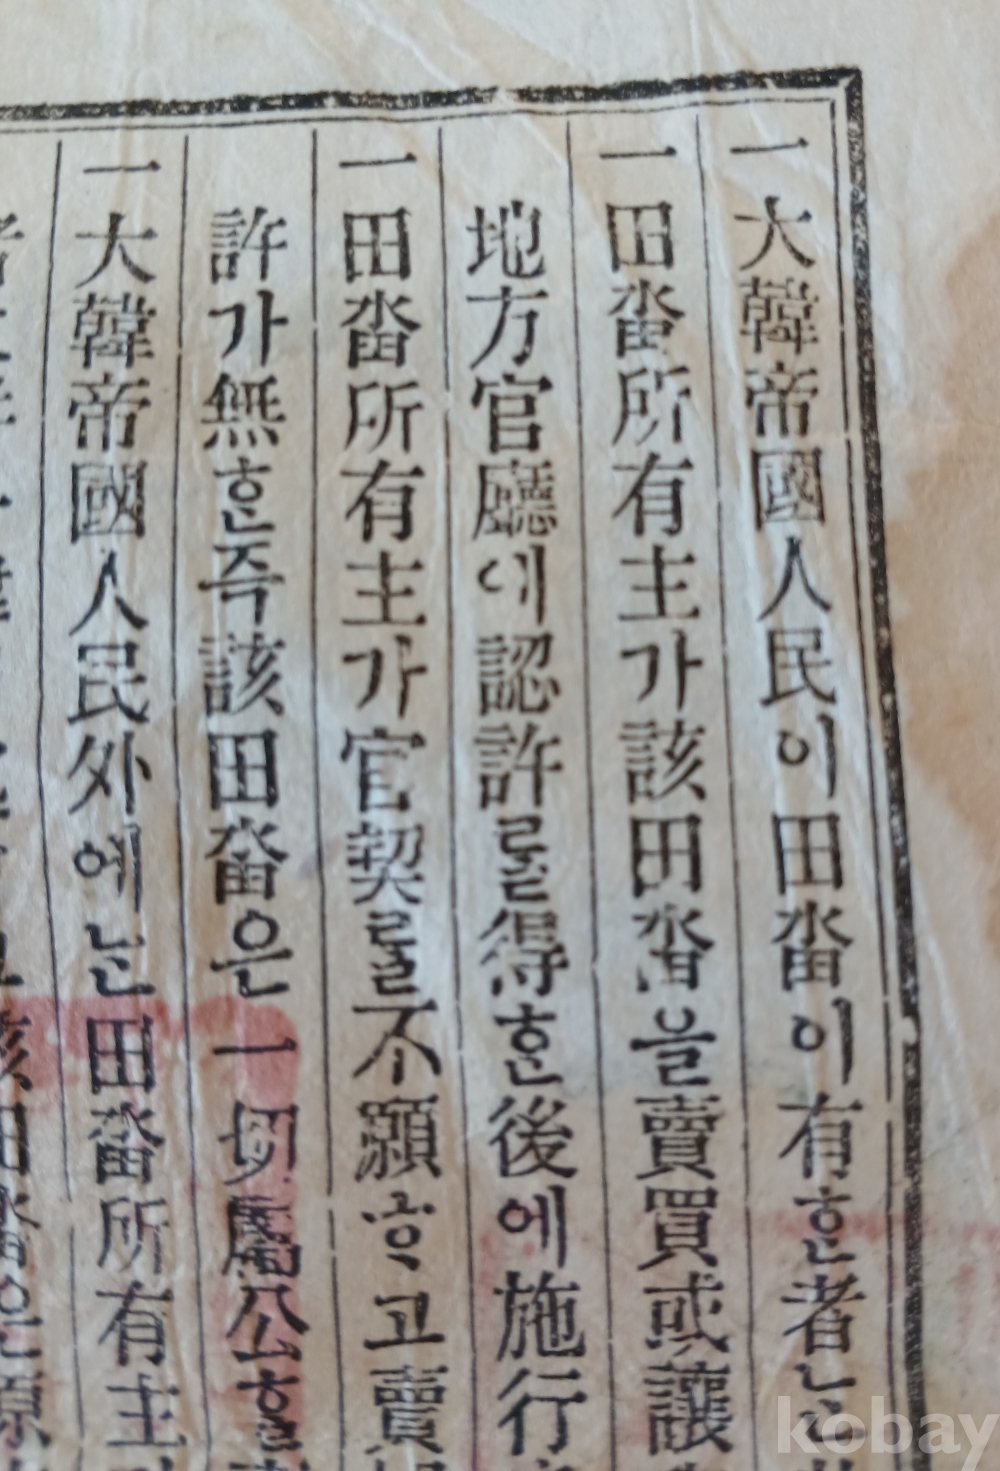 一大韓帝國人民이田畓이有ᄒᆞᆫ者ᄂᆞᆫ
一田畓所有主가該田畓을賣買或讓
地方官廳에認許ᄅᆞᆯ得ᄒᆞᆫ後에施行
一田畓所有主가官契ᄅᆞᆯ不願ᄒᆞ고賣
許가無ᄒᆞᆫ즉該田畓은一切屬公ᄒᆞᆯ
一大韓帝國人民外에ᄂᆞᆫ田畓所有主
該田畓은原
kobay